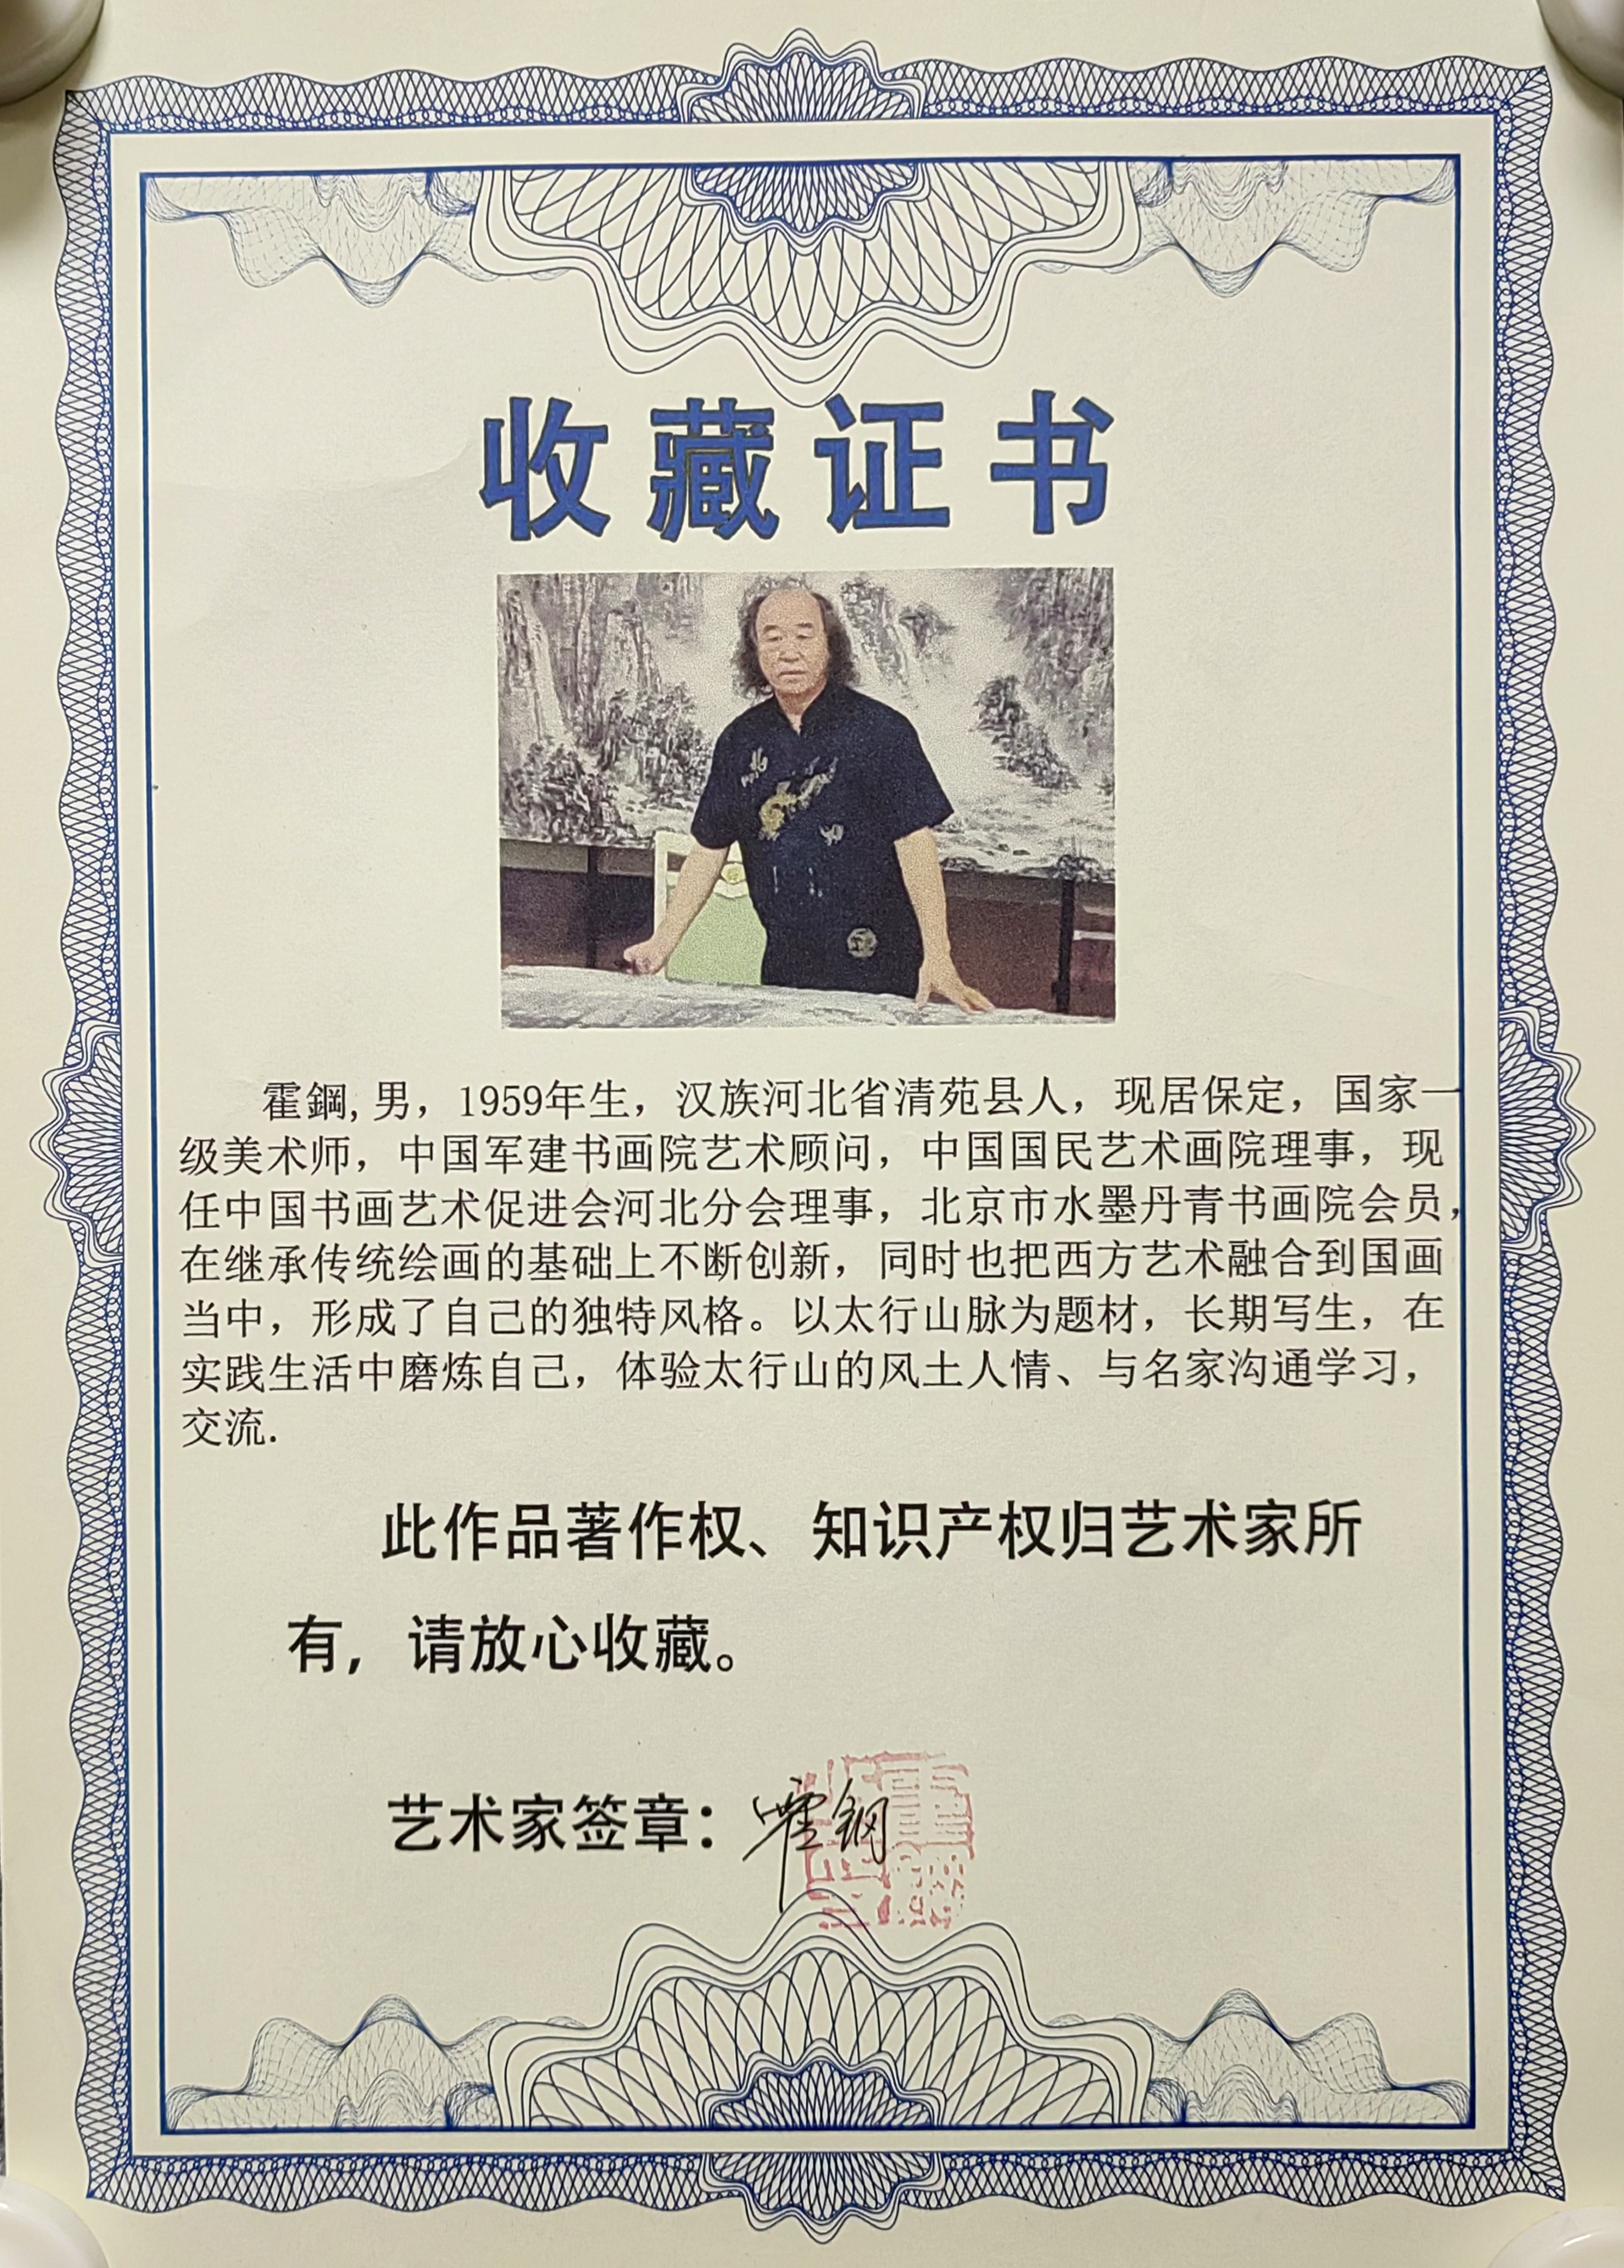 收藏证书
霍鋼,男，1959年生，汉族河北省清苑县人，现居保定，国家一
级美术师，中国军建书画院艺术顾问，中国国民艺术画院理事，现
任中国书画艺术促进会河北分会理事，北京市水墨丹青书画院会员，
在继承传统绘画的基础上不断创新，同时也把西方艺术融合到国画
当中，形成了自己的独特风格。以太行山脉为题材，长期写生，在
实践生活中磨炼自己，体验太行山的风土人情、与名家沟通学习，
交流.
此作品著作权、知识产权归艺术家所
有，请放心收藏。
艺术家签章：霍钢